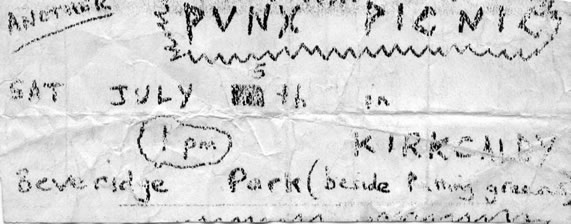 ANOTHER PUNX PICNIC
SAT JULY 5th in
1 pm KIRKCALDY
Beveridge Park (beside Putting greens)